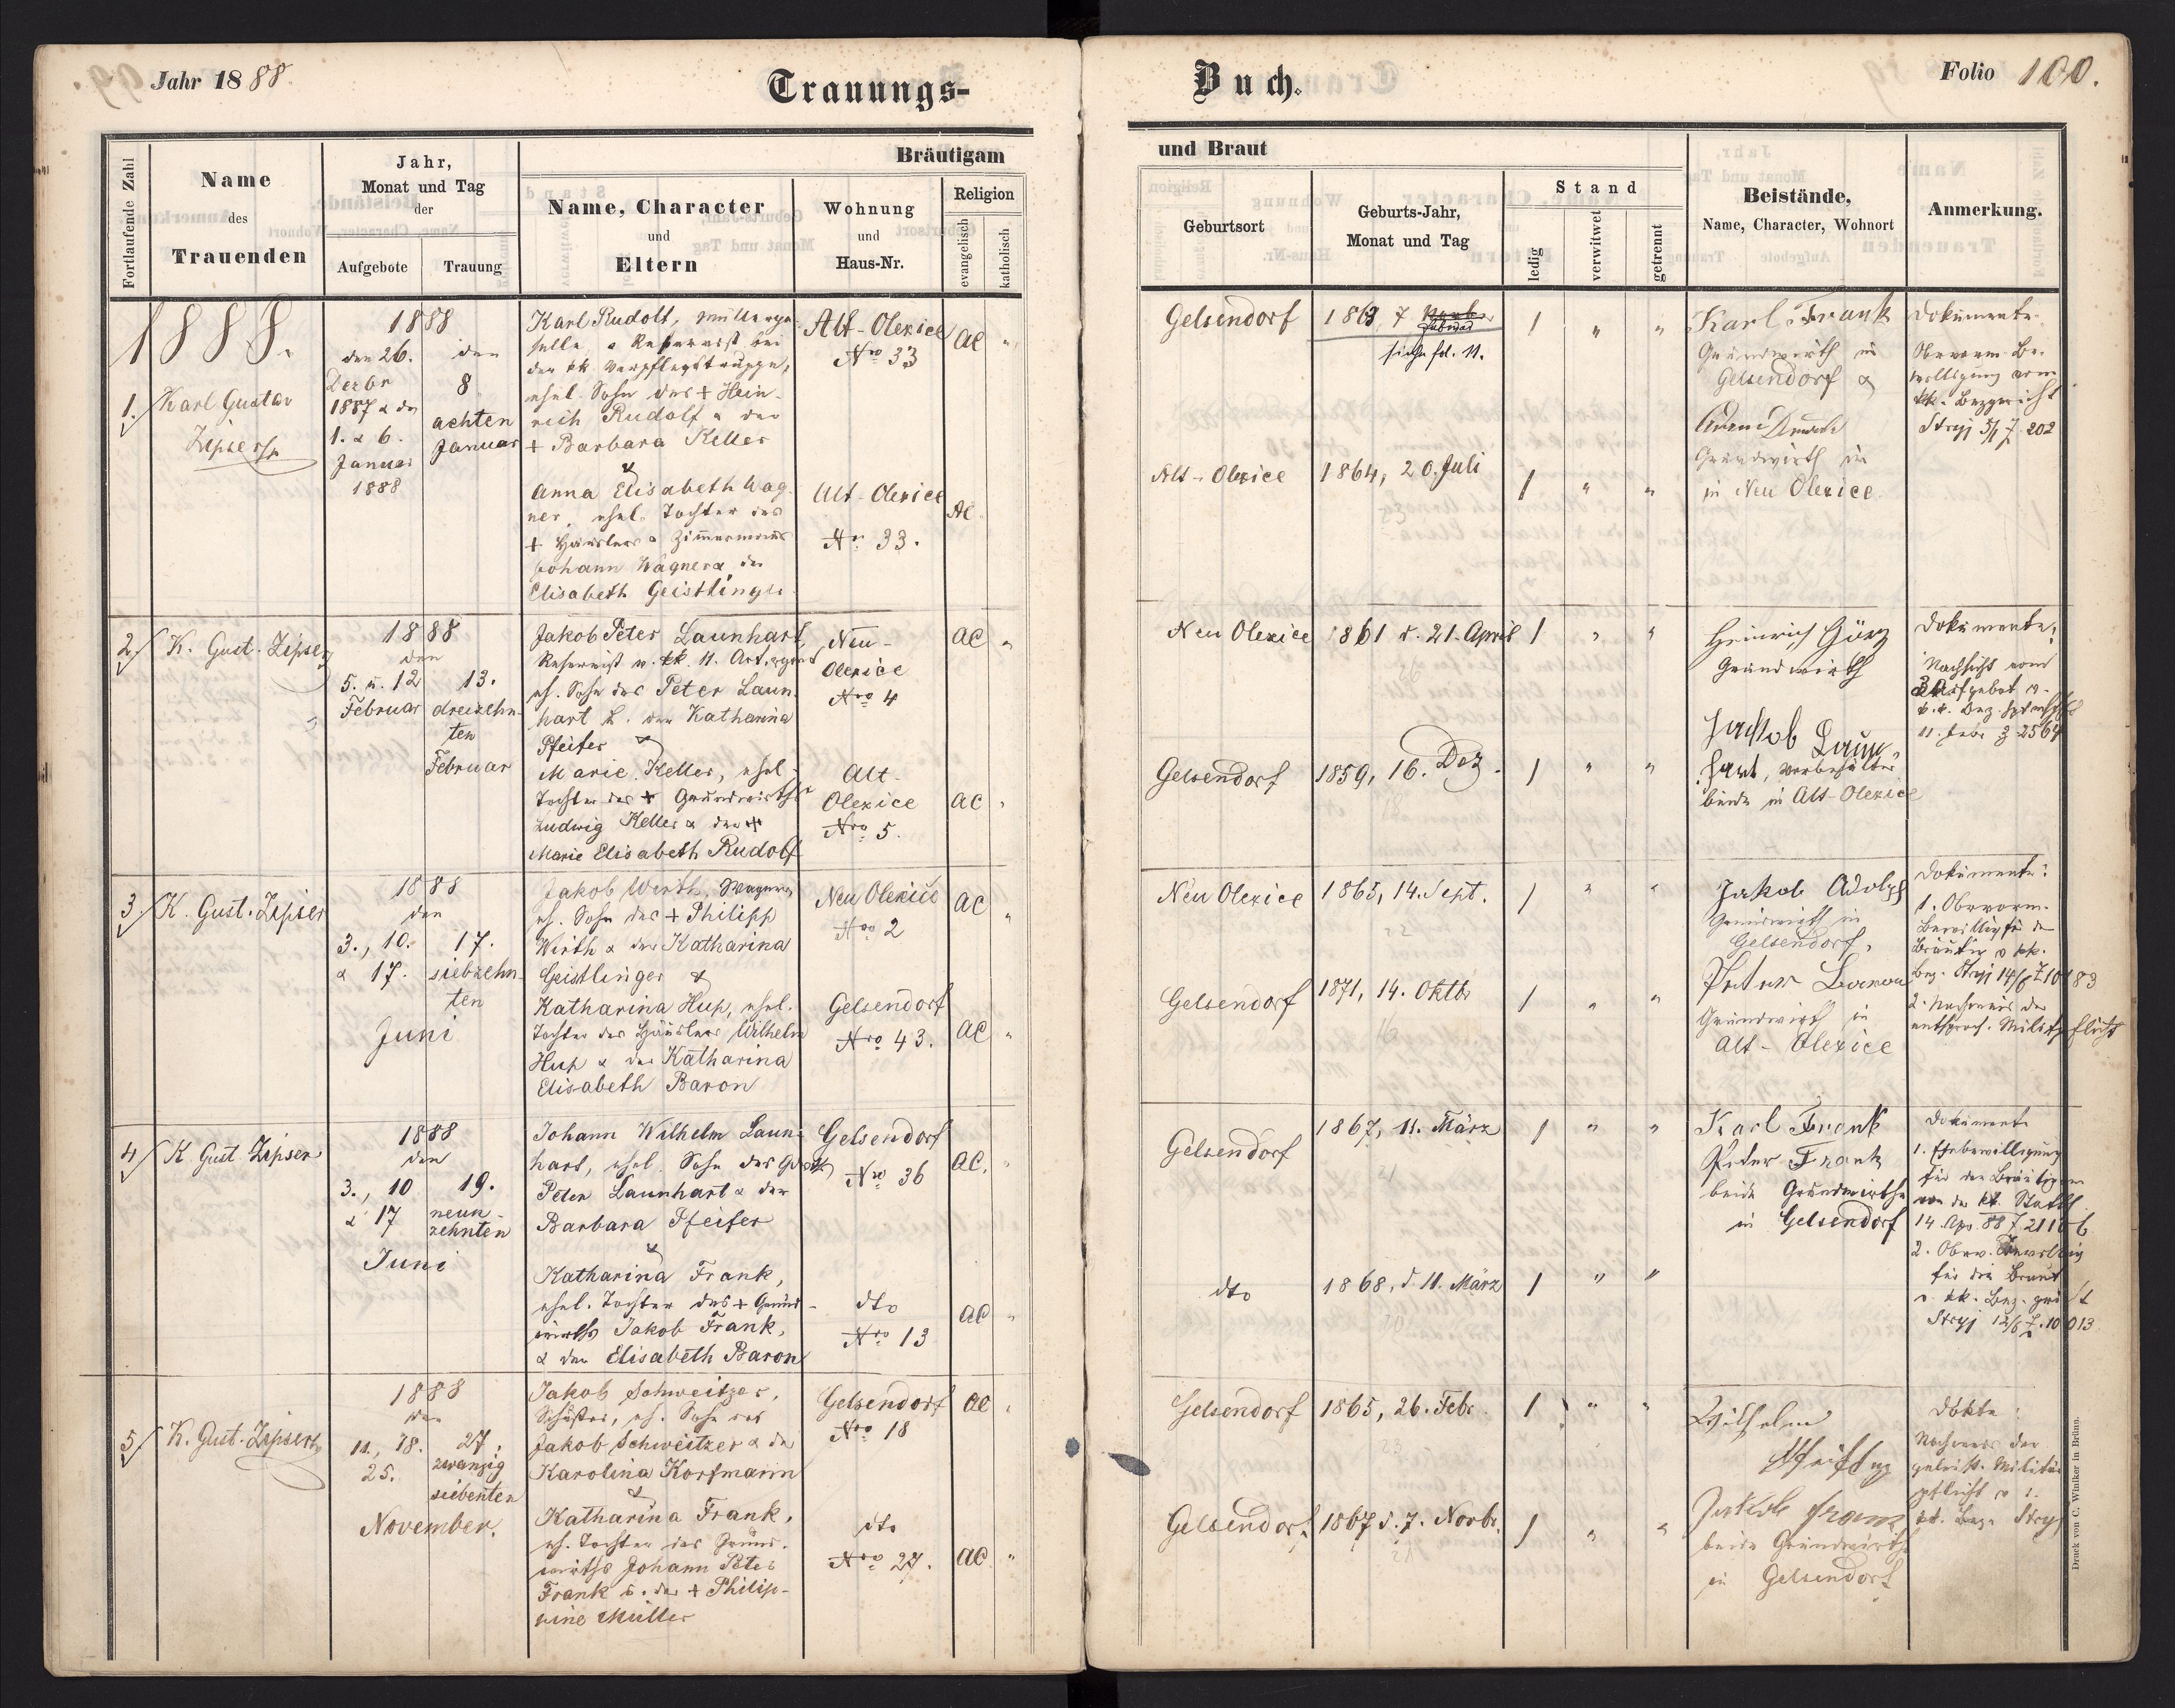 Jahr 1888
Trauungs-
Buch.
Folio 100.
Fortlaufende Zahl
Name
des
Trauenden
Jahr,
Monat und Tag
der
Aufgebote
Trauung
Bräutigam
Name, Character
und
Eltern
Wohnung
und
Haus-Nr.
Religion
evangelisch
katholisch
und Braut
Geburtsort
Geburts-Jahr,
Monat und Tag
Stand
ledig
verwitwet
getrennt
Beistände,
Name, Character, Wohnort
Anmerkung.
1888.
1. Karl Gustav
Zipser
1888
den 26.
Dezbr
1887 & den
1. & 6.
Januar
1888
den
8
achten
Januar
Karl Rudolf, Müllerge-
selle, & Reservist bei
der kk Verpflegstruppe,
ehel. Sohn des + Hein-
rich Rudolf & der
+ Barbara Keller
&
Anna Elisabeth Wag-
ner, ehel. Tochter des
+ Häuslers & Zimmermanns
Johann Wagner & der
Elisabeth Geistlinger
Alt-Olexice
Nro 33
AC "
Alt-Olexice
Nr. 33.
AC
Gelsendorf
1863, 7
Februar
siehe fol. 11.
1 " "
Alt-Olexice
1864, 20. Juli
1 " "
Karl Frank
Grundwirth in
Gelsendorf &
Grundwirth in
in Neu Olexice.
Dokumente.
Obervorm. Be-
willigung vom
kk. Bezgericht
Stryj 5/1 Z. 202
2. K. Gust. Zipser
1888
den
5. u. 12
Februar
13.
dreizehn-
ten
Februar
Jakob Peter Launhart,
Reservist v. kk. 11. Art.
eh. Sohn des Peter Laun-
hart & der Katharina
Pfeifer &
Marie Keller, ehel.
Tochter des + Grundwirths
Ludwig Keller & der +
Marie Elisabeth Rudolf
Neu-
Olexice
Nro 4
AC "
Alt-
Olexice
Nro 5.
AC "
Neu Olexice
1861 d. 21. April
1 " "
Gelsendorf
1859, 16. Dez.
1 " "
Heinrich Günz
Grundwirth
Jackob Laun-
hart,
beide in Alt-Olexice
Dokumente:
Nachsicht vom
3 Aufgebot v.
11. Febr. Z 2564
3. K. Gust. Zipser
1888
den
3., 10.
& 17.
17.
siebzehn-
ten
Juni
Jakob Wirth, Wagner,
eh. Sohn des + Philipp
Wirth & der Katharina
Geistlinger &
Katharina Hup, ehel.
Tochter des Häuslers Wilhelm
Hup & der Katharina
Elisabeth Baron
Neu Olexice
Nro 2
AC "
Gelsendorf
Nro 43.
AC "
Neu Olexice
1865, 14. Sept.
1 " "
Gelsendorf
1871, 14. Oktbr
1 " "
Jakob Adolph
Grundwirth in
Gelsendorf.
Peter
Grundwirth in
Alt-Olexice
Dokumente:
1. Obervorm.
Bewillig für den
Bräutig v kk.
Bez. Stryj 14/6 Z 10183
2. Nachweis der
entsproch. Militpflicht
4. K. Gust. Zipser
1888
den
3., 10
& 17
19.
neun-
zehnten
Juni
Johann Wilhelm Laun-
hart, ehel. Sohn des
Peter Launhart & der
Barbara Pfeifer
&
Katharina Frank,
ehel. Tochter des + Grund-
wirths Jakob Frank,
& der Elisabeth Baron
Gelsendorf
Nro 36
AC. "
dto
Nro 13
AC "
Gelsendorf
1867, 11. März
1 " "
dto
1868, d. 11. März
1 " "
Karl Frank
Peter Frank
beide Grundwirthe
in Gelsendorf
Dokumente
1. Ehebewilligung
für den Bräutigam
von der kk. Statth.
14. Apr. 88 Z. 21106
2. Oberv. Bewillig
für die Braut
v. kk. Bez. gericht
Stryj 12/6 Z. 10013
5. K. Gust. Zipser
1888
den
11., 18.
25.
27.
zwanzig
siebenten
November.
Jakob Schweitzer,
Schuster, eh. Sohn des
Jakob Schweitzer & der
Karolina Korfmann
&
Katharina Frank,
eh. Tochter des Grund-
wirths Johann Peter
Frank u. der + Philip-
pine Müller
Gelsendorf
Nro 18
AC "
dto
Nro 27.
AC "
Gelsendorf
1865, 26. Febr.
1 " "
Gelsendorf
1867 d. 7. Novbr.
1 " "
Wilhelm
Jakob
beide Grundwirthe
in Gelsendorf
Dokte:
Nachweis der
geleist. Militär
pflicht v
kk. Bez. Stryj
Druck von C. Winiker in Brünn.